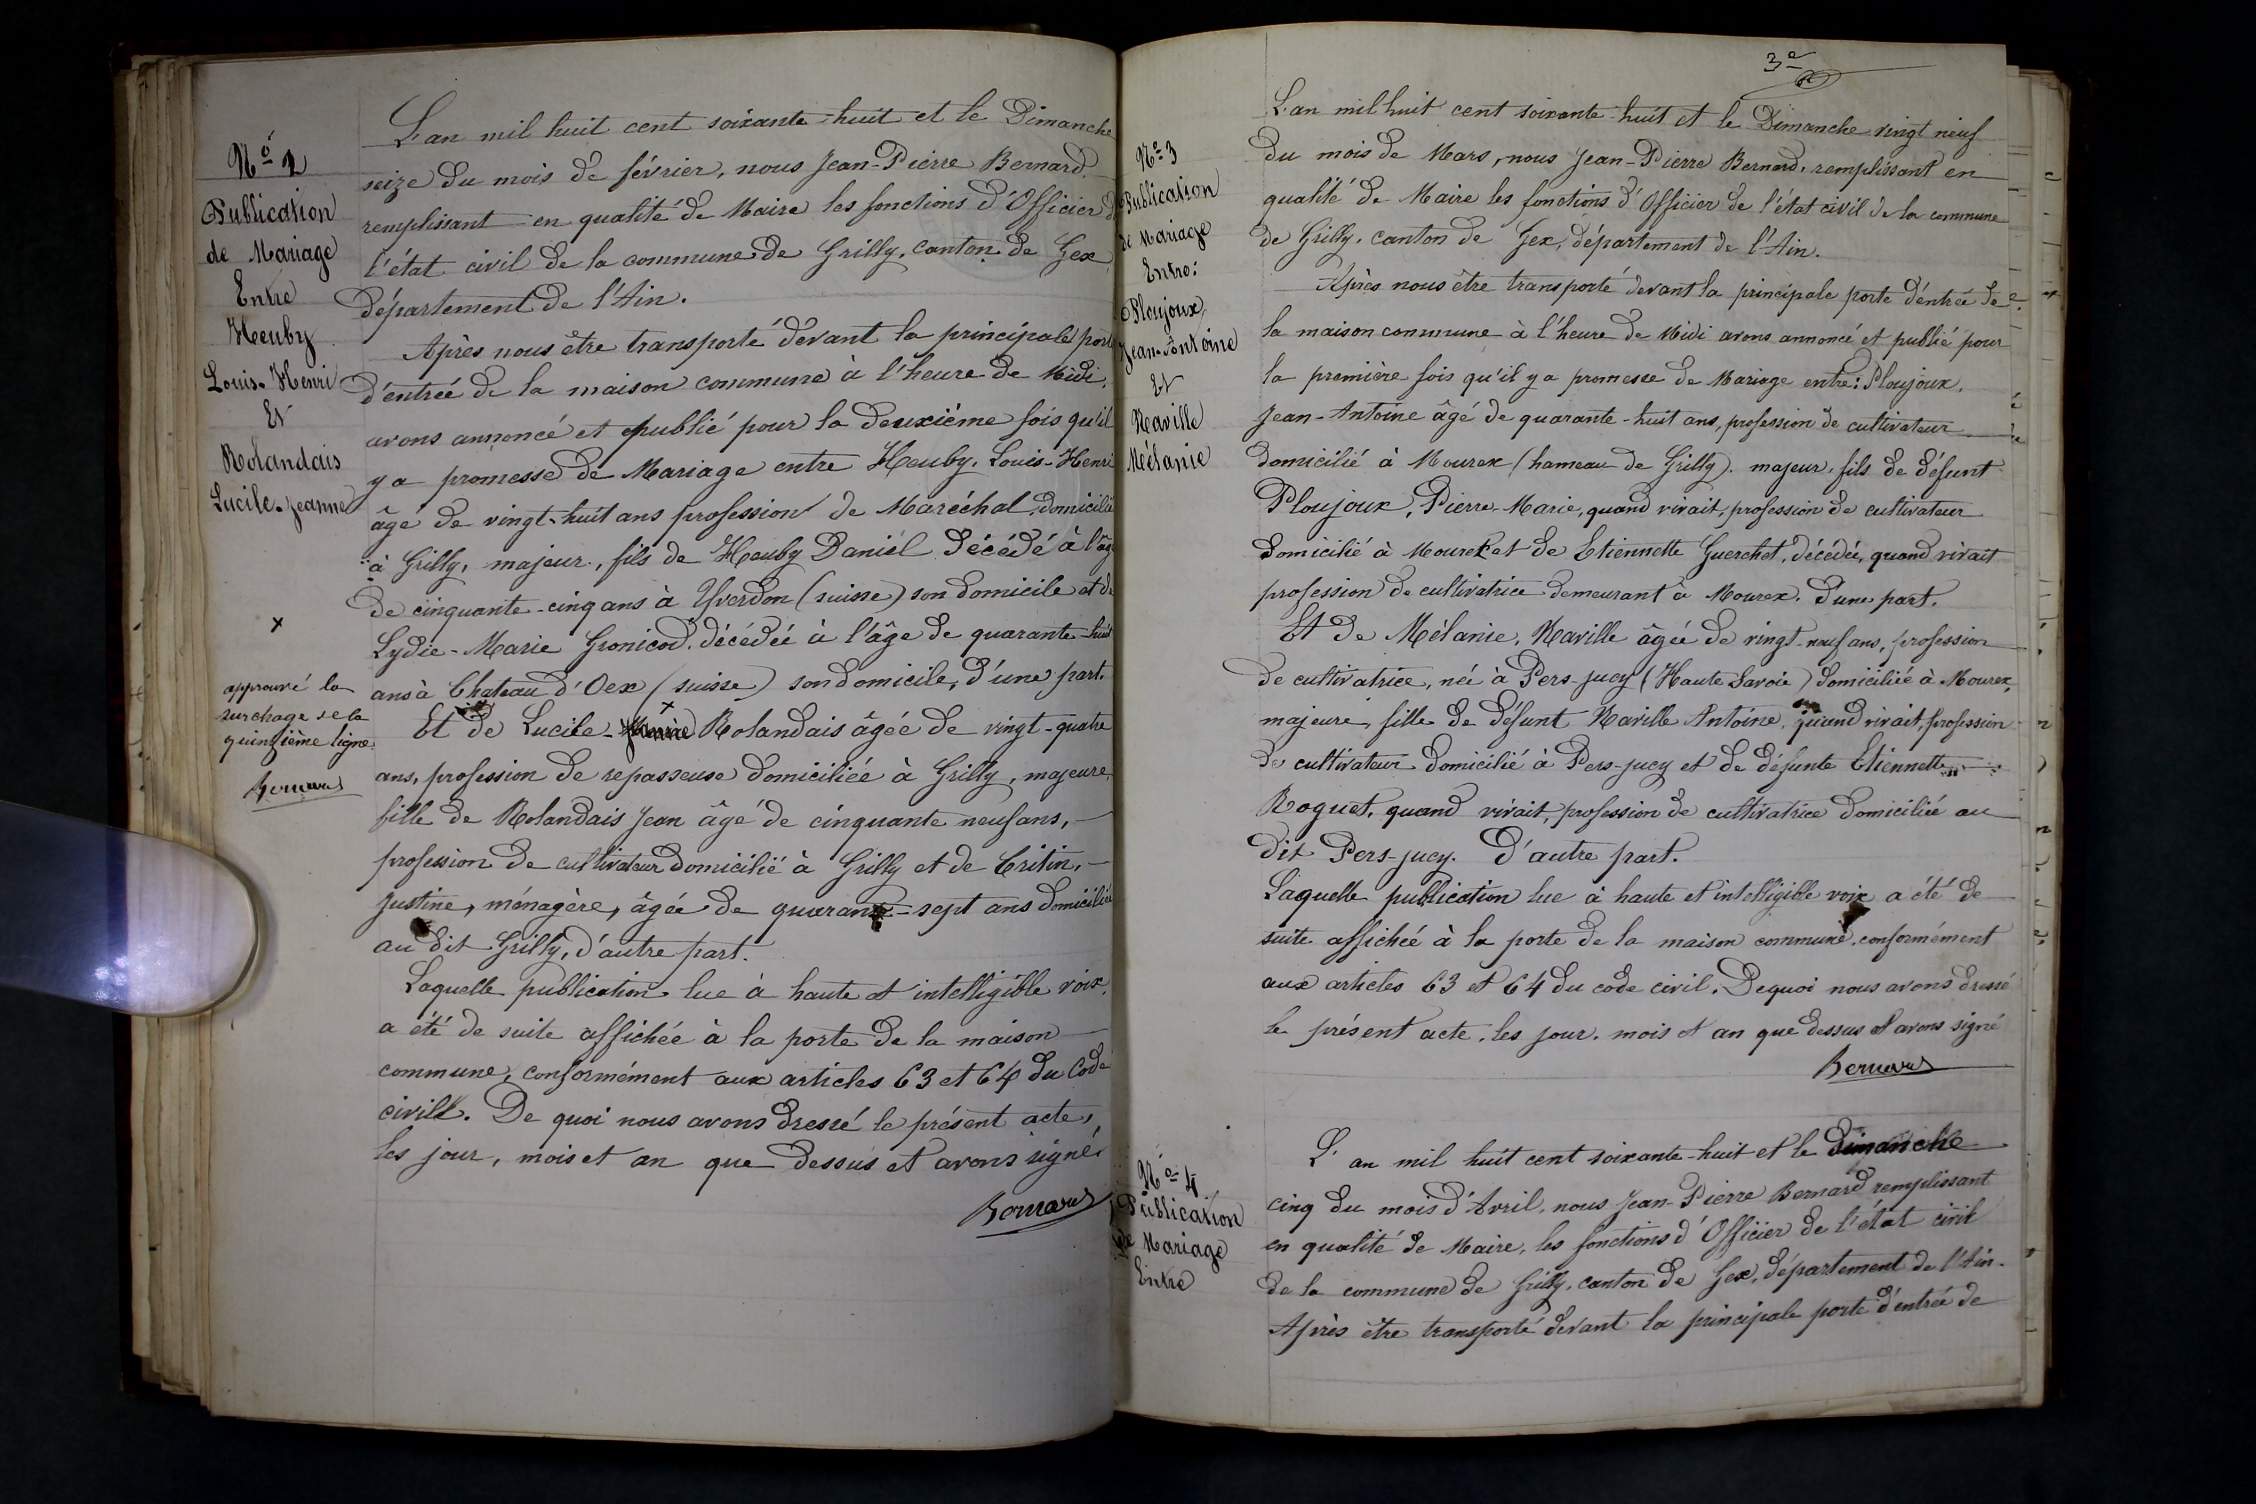 Nº 2
Publication
de Mariage
Entre
Heuby
Louis-Henri
Et
Rolandais
Lucile-Jeanne
x
approuvé la
surchage de la
quinzième ligne.
Bernard
L'an mil huit cent soixante-huit et le Dimanche
seize du mois de février, nous Jean-Pierre Bernard
remplissant en qualité de Maire les fonctions d'Officier de
l'état civil de la commune de Grilly, canton de Gex
département de l'Ain.
Après nous être transporté devant la principale porte
d'entrée de la maison commune à l'heure de Midi,
avons annoncé et publié pour la deuxième fois qu'il
y a promesse de Mariage entre Heuby, Louis-Henri
âgé de vingt-huit ans profession de Maréchal, domicilié
à Grilly, majeur, fils de Heuby Daniel décédé à l'âge
de cinquante-cinq ans à Yverdon (suisse) son domicile et de
Lydie-Marie Gronicod, décédée à l'âge de quarante-huit
ans à Chateau d'Oex (suisse) son domicile, d'une part.
x
Et de Lucile-Jeanne Rolandais âgée de vingt-quatre
ans, profession de repasseuse domiciliée à Grilly, majeure,
fille de Rolandais Jean âgé de cinquante neuf ans,
profession de cultivateur domicilié à Grilly et de Critin,
Justine, ménagère, âgée de quarante-sept ans domiciliée
au dit Grilly, d'autre part.
Laquelle publication lue à haute et intelligible voix,
a été de suite affichée à la porte de la maison
commune, conformément aux articles 63 et 64 du Code
civil. De quoi nous avons dressé le présent acte,
les jour, mois et an que dessus et avons signé.
Bernard
3e
Nº 3
Publication
de Mariage
Entre:
Ploujoux,
Jean-Antoine
Et
Naville
Mélanie
L'an mil huit cent soixante-huit et le Dimanche vingt neuf
du mois de Mars, nous Jean-Pierre Bernard, remplissant en
qualité de Maire les fonctions d'Officier de l'état civil de la commune
de Grilly, canton de Gex, département de l'Ain.
Après nous être transporté devant la principale porte d'entrée de
la maison commune à l'heure de Midi avons annoncé et publié pour
la première fois qu'il y a promesse de Mariage entre: Ploujoux,
Jean-Antoine âgé de quarante-huit ans, profession de cultivateur
domicilié à Mourex (hameau de Grilly), majeur, fils de défunt
Ploujoux, Pierre-Marie, quand vivait, profession de cultivateur
domicilié à Mourex et de Etiennette Guerchet, décédée, quand vivait
profession de cultivatrice demeurant à Mourex. D'une part.
Et de Mélanie, Naville âgée de vingt-neuf ans, profession
de cultivatrice, née à Pers-jucy (Haute Savoie) domiciliée à Mourex,
majeure, fille de défunt Naville Antoine, quand vivait, profession
de cultivateur domicilié à Pers-jucy et de défunte Etiennette
Roguet, quand vivait, profession de cultivatrice domiciliée au
dit Pers-jucy. D'autre part.
Laquelle publication lue à haute et intelligible voix a été de
suite affichée à la porte de la maison commune, conformément
aux articles 63 et 64 du code civil. De quoi nous avons dressé
le présent acte, les jour, mois et an que dessus et avons signé
Bernard
Nº 4
Publication
de Mariage
Entre
L'an mil huit cent soixante-huit et le Dimanche
cinq du mois d'Avril, nous Jean-Pierre Bernard remplissant
en qualité de Maire, les fonctions d'Officier de l'état civil
de la commune de Grilly, canton de Gex, département de l'Ain.
Après être transporté devant la principale porte d'entrée de